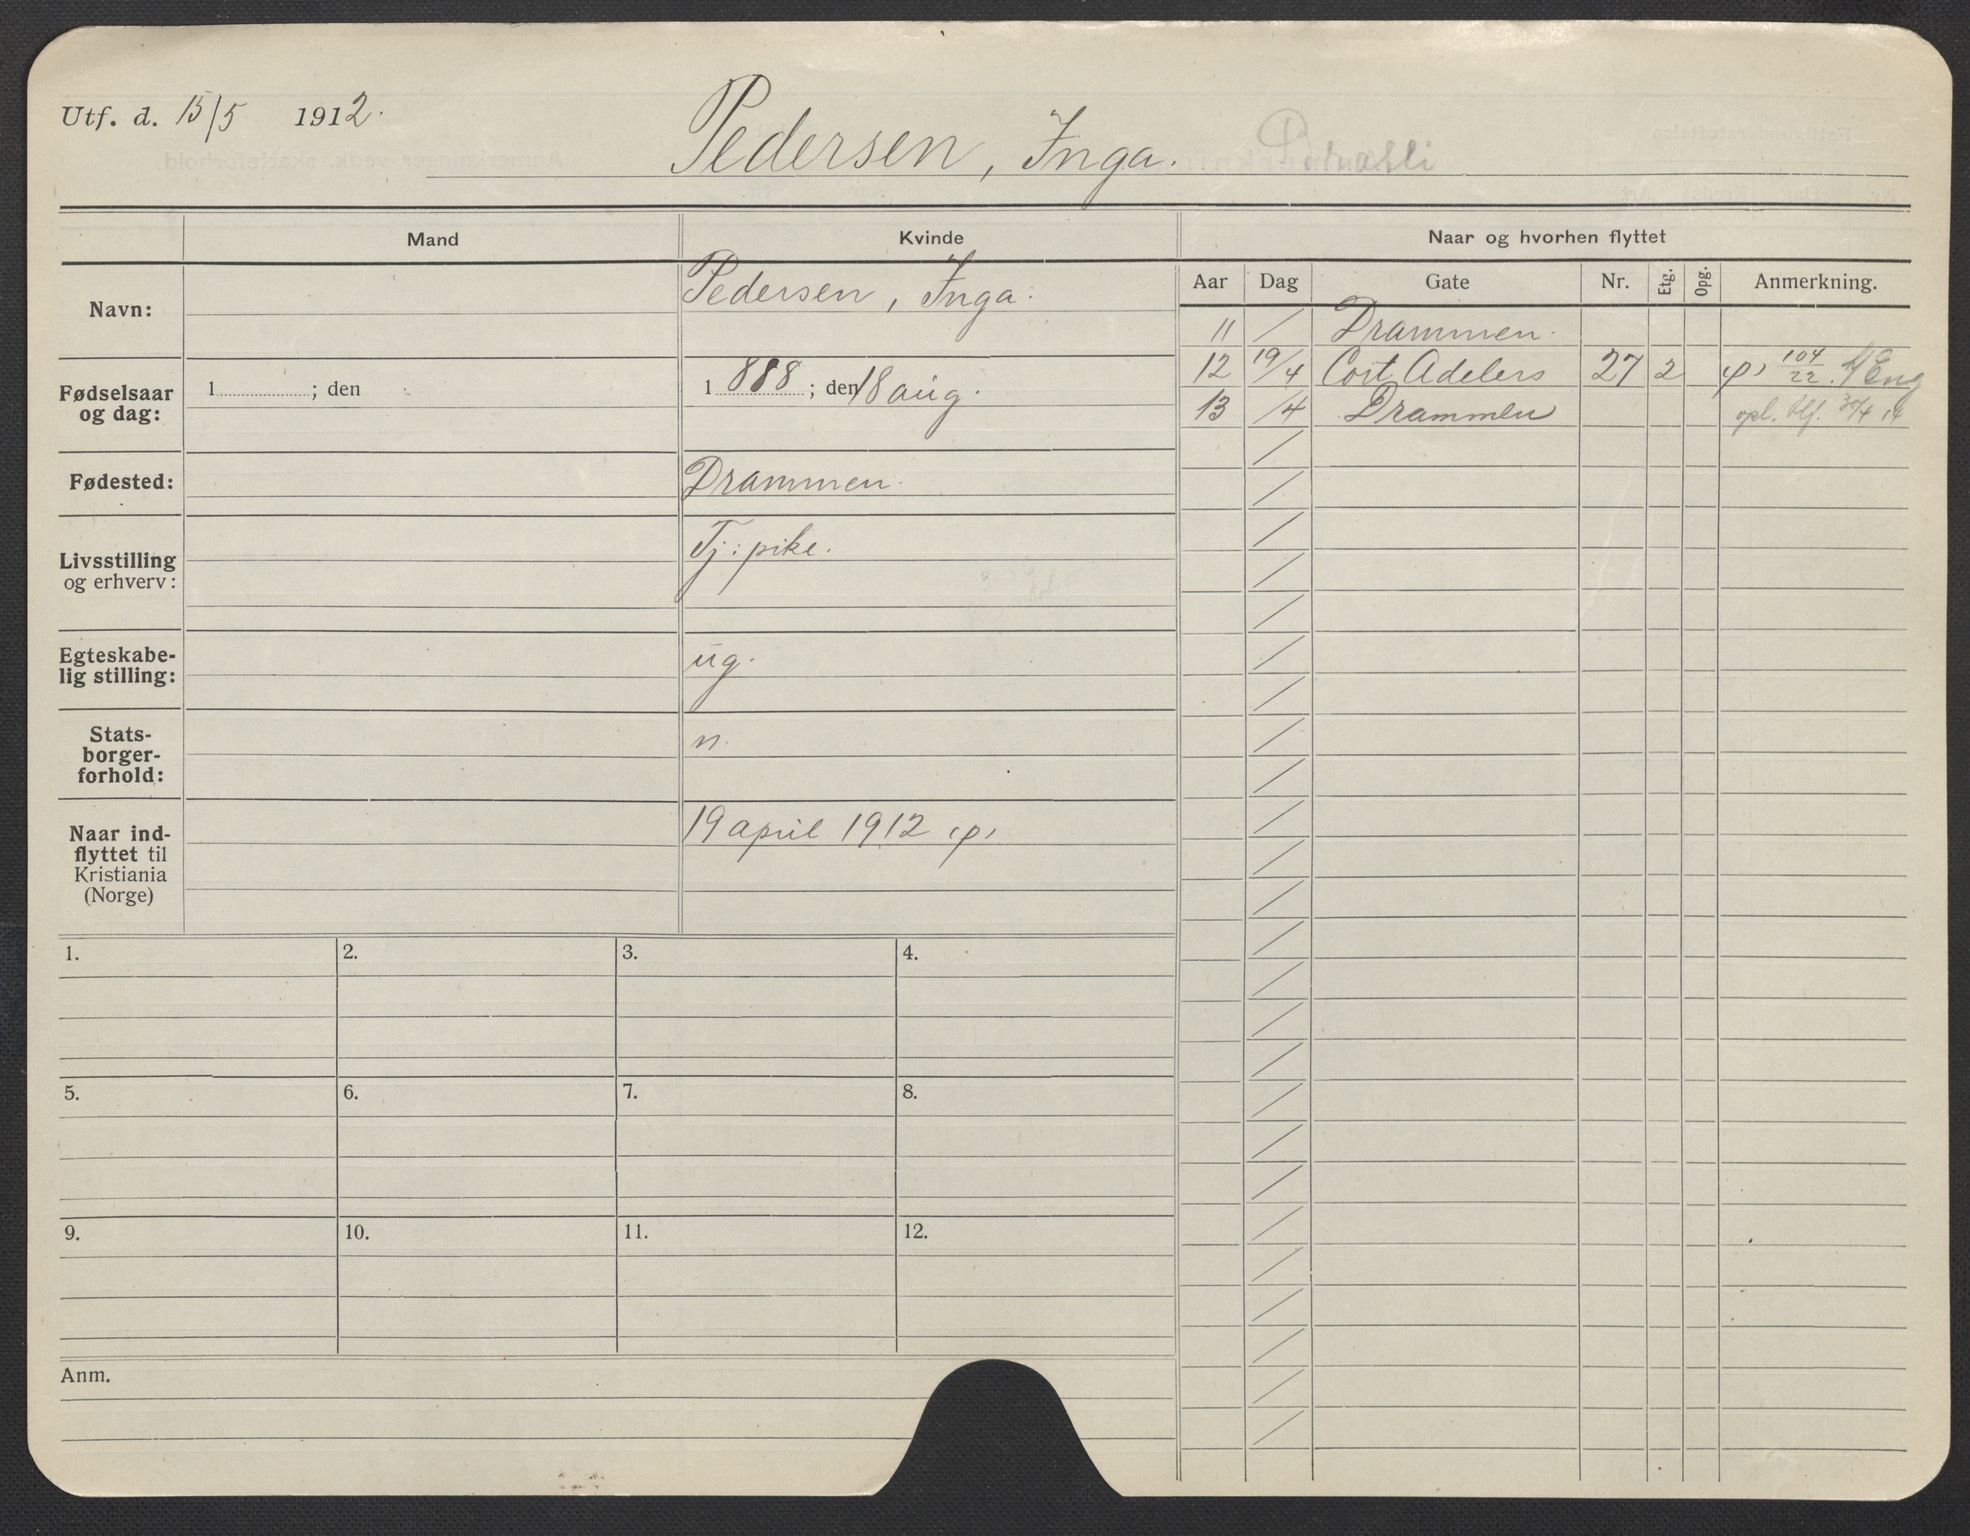 Utf. d. 15/5 1912.
Pedersen, Inga.
Mand
Kvinde
Naar og hvorhen flyttet
Aar Dag Gate Nr. Etg. Opg. Anmerkning.
Navn:
Pedersen, Inga.
Fødselsaar og dag:
1 ; den
1888 ; den 18 aug.
Fødested:
Drammen.
Livsstilling og erhverv:
Tj: pike.
Egteskabe-
lig stilling:
ug.
Stats-
borger-
forhold:
n.
Naar ind-
flyttet til
Kristiania
(Norge)
19 april 1912
11 / Drammen.
12 19/4 Cort Adelers 27 2 104/22 Eng
13 /4 Drammen opl. 30/4 14
1. 2. 3. 4.
5. 6. 7. 8.
9. 10. 11. 12.
Anm.